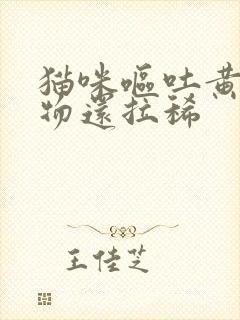 猫咪呕吐黄
物还拉稀
王佳芝